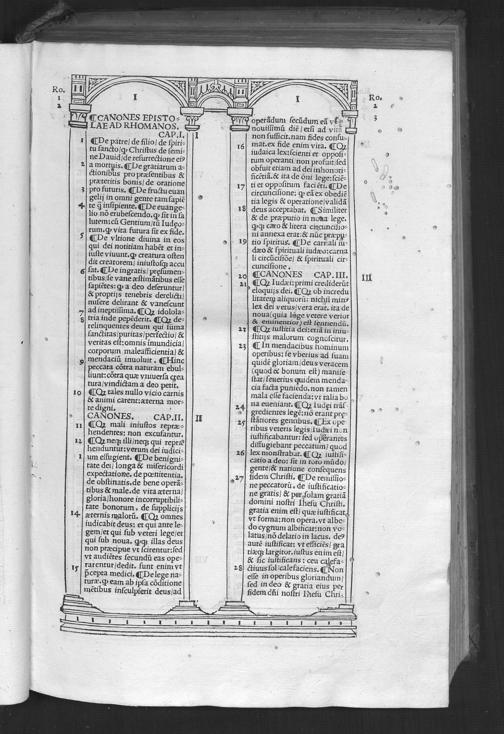 Ro.
1
2
I
I
Ro.
2
3
¶CANONES EPISTO-
LAE AD RHOMANOS.
CAP.I. I
1 ¶De patre/ de filio/ de spiri
tu sancto/ Christus de semi
ne Dauid/ de resurrectione ei9
2 a mortuis. ¶De gratiarum a-
ctionibus pro praesentibus &
praeteritis bonis/ de oratione
3 pro futuris. ¶De fructu euan
gelij in omni gente tam sapiẽ
4 te insipiente. ¶De euange-
lio nõ erubescendo, sit in sa
lutem: cũ Gentium/ tũ Iudeo-
rum. vita futura sit ex fide.
5 ¶De vltione diuina in eos
qui dei notitiam habẽt et in-
iuste viuunt. creatura osten
dit creatorem/ iniustosq; accu
6 sat. ¶De ingratis/ presumen-
tibus/ se vane æstimãtibus esse
sapiẽtes: a deo deseruntur/
& proprijs tenebris derelicti/
misere delirant & vanescunt
7 ad ineptissima. ¶ idolola-
8 tria inde pepẽderit. ¶ de-
relinquentes deum qui summa
sanctitas/ puritas/ perfectio/ &
veritas est: omnis immundicia/
corporum maleafficentia/ &
9 mendaciũ inuoluit. ¶Hinc
peccata cõtra naturam ebul-
liunt: cõtra quæ vniuersa crea
tura/ vindictam a deo petit.
10 ¶ tales nullo vicio carnis
& animi carent: æterna mor-
te digni.
CANONES. CAP.II. II
11 ¶ mali iniustos repræ-
hendentes: non excusantur.
12 ¶ neq; illi/ neq; qui repræ
henduntur: verum dei iudici-
1 um effugient. ¶De benigni-
tate dei/ longa & misericordi
expectatione, de pœnitentia,
de obstinatis, de bene operã-
tibus & male, de vita æterna/
gloria/ honore incorruptibili-
tate bonorum, de supplicijs
14 æternis malorũ. ¶ omnes
iudicabit deus: et qui ante le-
gem/ et qui sub veteri lege/ et
qui sub noua. illas deus
non præcipue vt scirentur: sed
vt audiẽtes secundũ eas ope-
rarentur/ dedit. sunt enim vt
15 præcepta medici. ¶De lege na-
tura. eam ab ipsa cõditione
mẽtibus insculpserit deus/ ad
operãdum secũdum eã
nouissima die/
non sufficit. nam fides consum-
mat. ex fide enim vita. ¶
16 iudaica lex/ scienti et opposi-
tum operanti non profuit: sed
obfuit etiam ad dei inhonori-
ficẽtiã: & ita de õni lege: sciẽ-
17 ti et oppositum faciẽti. ¶De
circuncisione: ea ex obediẽ
tia legis & operatione/ valida
18 deus acceptabat. ¶Similiter
& de præputio in noua lege.
caro & litera circuncisio-
ni annexa erat: & nũc præpu-
19 tio spiritus. ¶De carnali iu-
dæo & spirituali iudæo: carna
li circũcisiõe/ & spirituali cir-
cuncisione.
20 ¶CANONES CAP.III. III
21 ¶ Iudæi: primi crediderũt
eloquijs dei. ¶ ob incredu
litatem aliquorũ: nichil min9
lex dei verus/ vera erat. ita de
noua/ quia lege vetere verior
& eminentior/ est sentiendũ.
22 ¶ iustitia dei: etiã in iniu-
stitijs malorum cognoscitur.
23 ¶ In mendacibus hominum
operibus: se vberius ad suam
quidẽ gloriam/ deus veracem
(quod & bonum est) manife-
stat: seuerius quidem menda-
cia facta puniendo. non tamen
mala esse facienda: vt talia bo
24 na eueniant. ¶ Iudei trãs-
gredientes legẽ: nõ erant præ-
25 stãtiores gentibus. ¶Ex ope-
ribus veteris legis/ Iudei non
iustificabantur: sed operantes
diffugiebant peccatum/ quod
26 lex monstrabat. ¶ iustifi-
catio a deo: sit in toto mũdo/
gente/ & natione consequens
27 fidem Christi. ¶De remissio-
ne peccatorũ, de iustificatio-
ne gratis/ & per solam gratiã
domini nostri Ihesu Christi.
gratia enim est/ quæ iustificat,
vt forma: non opera. vt albe-
do cygnum albificat: non vo-
latus/ nõ delatio in lacus. de9
autẽ iustificat: vt efficiẽs/ gra
tiæq; largitor. iustus enim est/
& sic iustificans: ceu calefa-
28 ctiuus sol/ calefaciens. ¶Non
esse in operibus gloriandum/
sed in deo & gratia eius per
fidem dñi nostri Ihesu Chri-